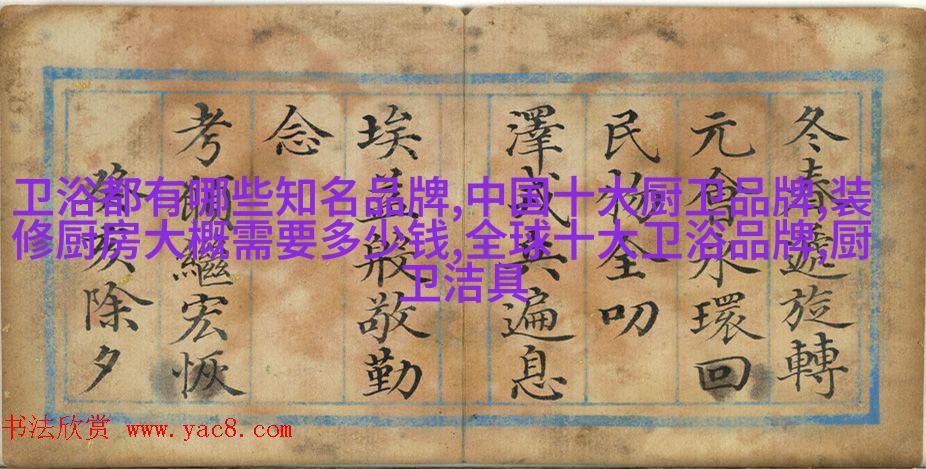 卫浴都有哪些知名品牌,中国十大厨卫品牌,装
修厨房大概需要多少钱,全球十大卫浴品牌,厨
卫洁具
冬春遞旋轉
元會環回
民物全叨
澤遍息
埃益殷敬勤
念
考繼宏恢
亥除夕
书法欣赏 www.yac8.com